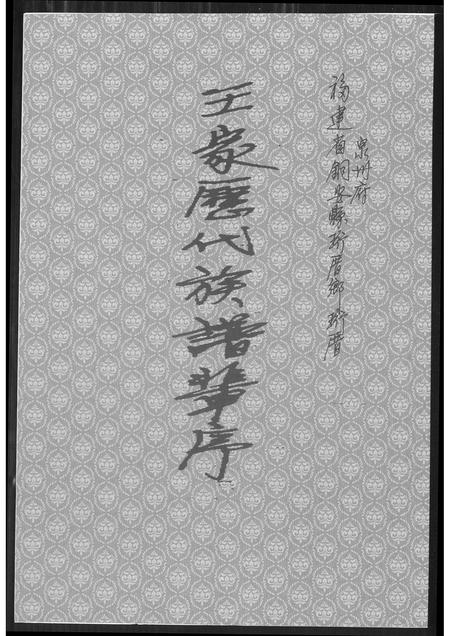 泉州府
福建省銅安縣珩厝鄉珩厝
王家歷代族譜華序